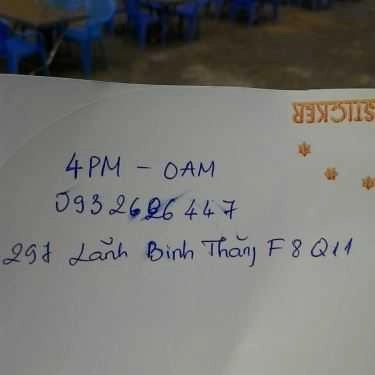 STICKER
4PM - 0AM
0932626447
297 Lãnh Binh Thăng F8 Q11